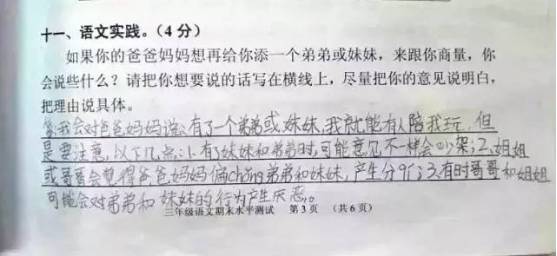 十一、语文实践。(4分)
如果你的爸爸妈妈想再给你添一个弟弟或妹妹，来跟你商量，你
会说些什么？请把你想要说的话写在横线上，尽量把你的意见说明白，
把理由说具体。
我会对爸爸妈妈说：有了一个弟弟或妹妹，我就能有人陪我玩。但
是要注意，以下几点：1.有了妹妹和弟弟时，可能意见不一样会吵架；2、姐姐
或哥哥会觉得爸爸妈妈偏chǒng弟弟和妹妹，产生分歧；3、有时哥哥和姐姐
可能会对弟弟和妹妹的行为产生厌恶。
三年级语文期末水平测试 第3页 (共6页)